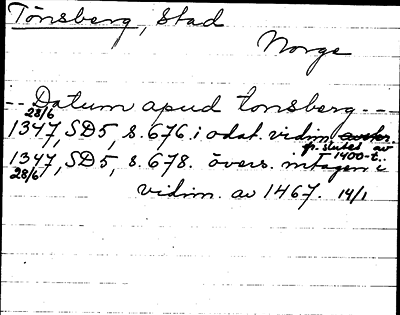 Tönsberg, Stad
Norge
-- Datum apud tonsberg --
28/6
1347, SD5, s. 676. i odat. vidim. avskr.
fr. slutet av
1400-t.
1347, SD5, s. 678. övers. intagen i
28/6
vidim. av 1467. 14/1